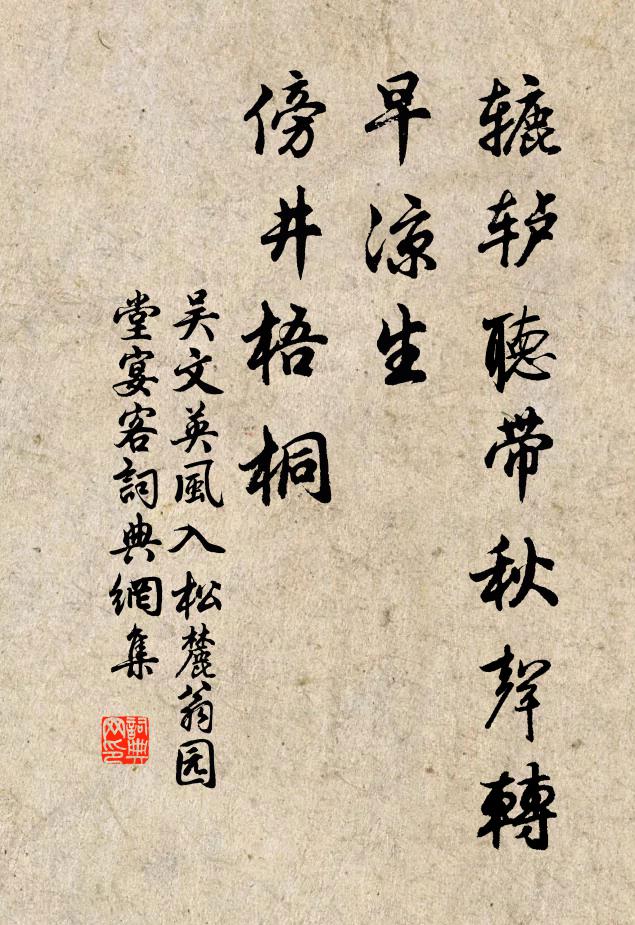 辘轳聽帶秋聲轉
早凉生
傍井梧桐
吴文英風入松麓翁园
堂宴客詞典網集
詞典网印